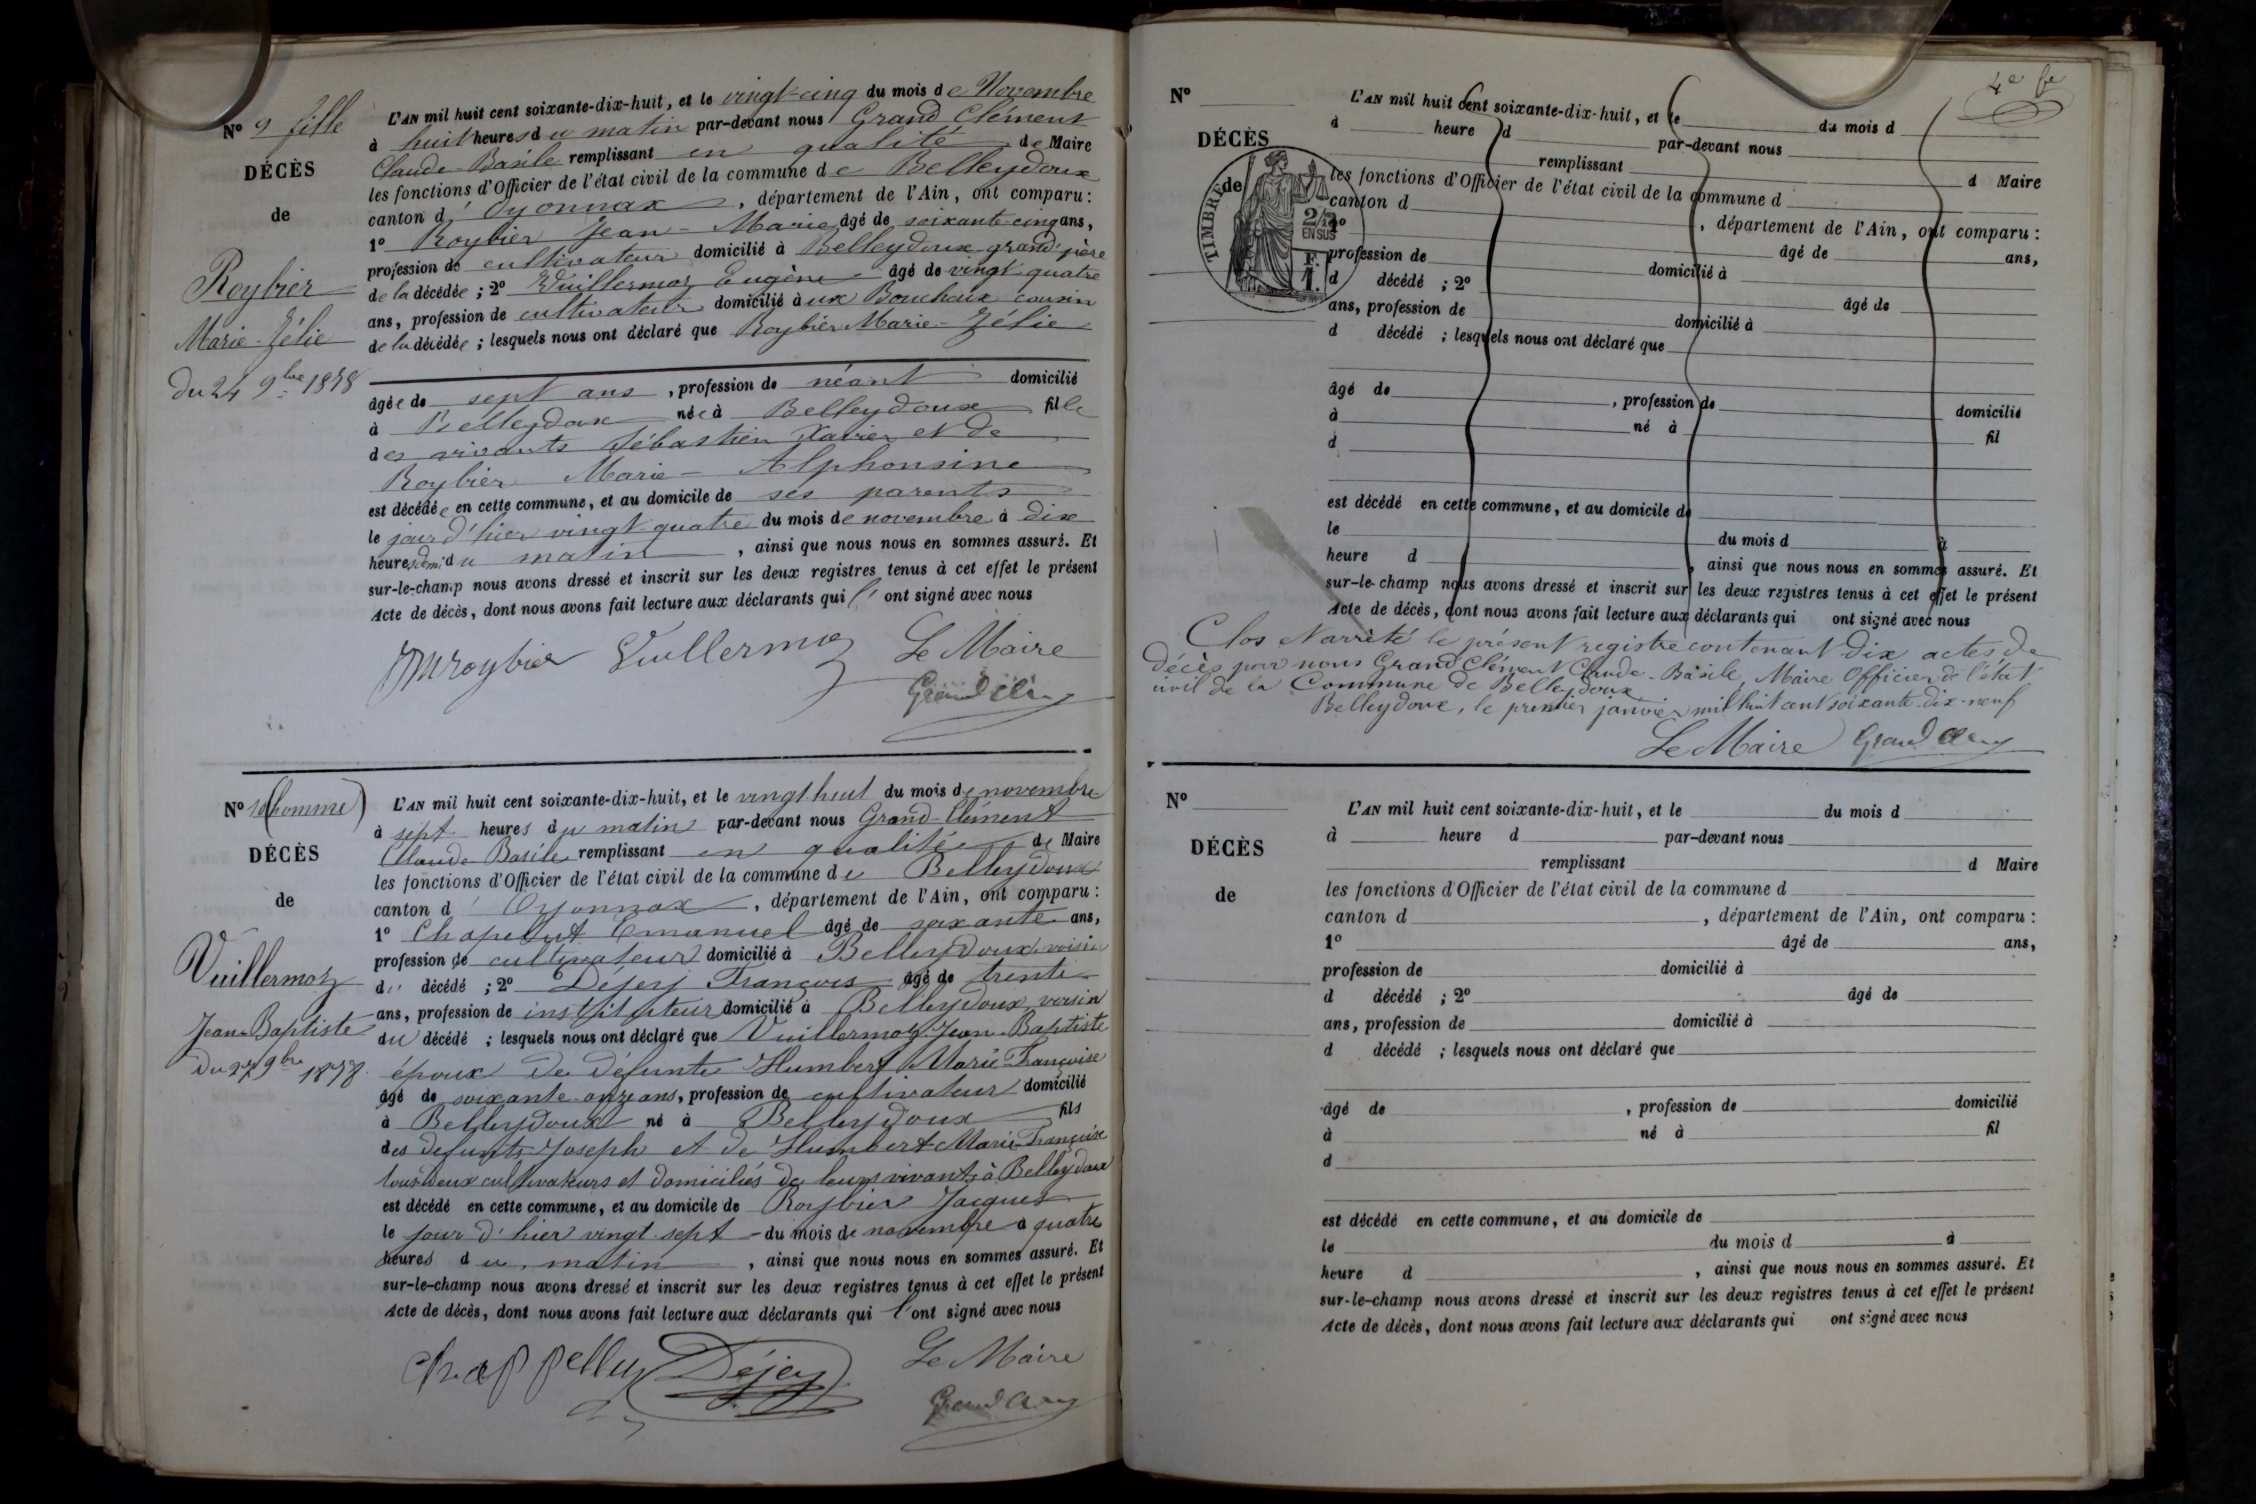 Nº 9 fille
DÉCÈS
de
Roybier
Marie-Zélie
du 24 9bre 1878
L'AN mil huit cent soixante-dix-huit, et le vingt-cinq du mois de Novembre
à huit heures du matin par-devant nous Grand Clément
Claude-Basile remplissant en qualité de Maire
les fonctions d'Officier de l'état civil de la commune de Belleydoux
canton d'Oyonnax, département de l'Ain, ont comparu :
1º Roybier Jean-Marie âgé de soixante cinq ans,
profession de cultivateur domicilié à Belleydoux grand'père
de la décédée ; 2º Vuillermoz Eugène âgé de vingt quatre
ans, profession de cultivateur domicilié à ux Bouchoux cousin
de la décédée ; lesquels nous ont déclaré que Roybier Marie-Zélie
âgée de sept ans, profession de néant domicilié
à Belleydoux née à Belleydoux fille
des vivants Sébastien Xavier et de
Roybier Marie-Alphonsine
est décédée en cette commune, et au domicile de ses parents
le jour d'hier vingt quatre du mois de novembre à dix
heures dem: du matin, ainsi que nous nous en sommes assuré. Et
sur-le-champ nous avons dressé et inscrit sur les deux registres tenus à cet effet le présent
Acte de décès, dont nous avons fait lecture aux déclarants qui l'ont signé avec nous
JMroybier Vuillermoz Le Maire
Grand Cl
Nº 10 (homme)
DÉCÈS
de
Vuillermoz
Jean-Baptiste
Du 27 9bre 1878.
L'AN mil huit cent soixante-dix-huit, et le vingt huit du mois de novembre
à sept heures du matin par-devant nous Grand-Clément
Claude Basile remplissant en qualité de Maire
les fonctions d'Officier de l'état civil de la commune de Belleydoux
canton d'Oyonnax, département de l'Ain, ont comparu :
1º Chapellut Emanuel âgé de soixante ans,
profession de cultivateur domicilié à Belleydoux voisin
du décédé ; 2º Déjey François âgé de trente
ans, profession de instituteur domicilié à Belleydoux voisin
du décédé ; lesquels nous ont déclaré que Vuillermoz Jean-Baptiste
époux de défunte Humbert Marie Françoise
âgé de soixante-onze ans, profession de cultivateur domicilié
à Belleydoux né à Belleydoux fils
des défunts Joseph et de Humbert Marie-Françoise
tous deux cultivateurs et domiciliés de leurs vivants à Belleydoux
est décédé en cette commune, et au domicile de Roybier Jacques
le jour d'hier vingt-sept du mois de novembre à quatre
heures du matin, ainsi que nous nous en sommes assuré. Et
sur-le-champ nous avons dressé et inscrit sur les deux registres tenus à cet effet le présent
Acte de décès, dont nous avons fait lecture aux déclarants qui l'ont signé avec nous
Chappellu Déjey Le Maire
Grand Cl
4e fe
Nº
DÉCÈS
de
TIMBRE
2/10
EN SUS
F.
1.
L'AN mil huit cent soixante-dix-huit, et le du mois d
à heure d par-devant nous
remplissant d Maire
les fonctions d'Officier de l'état civil de la commune d
canton d , département de l'Ain, ont comparu :
1º âgé de ans,
profession de domicilié à
d décédé ; 2º âgé de
ans, profession de domicilié à
d décédé ; lesquels nous ont déclaré que
âgé de , profession de domicilié
à né à fil
d
est décédé en cette commune, et au domicile de
le du mois d à
heure d , ainsi que nous nous en sommes assuré. Et
sur-le-champ nous avons dressé et inscrit sur les deux registres tenus à cet effet le présent
Acte de décès, dont nous avons fait lecture aux déclarants qui ont signé avec nous
Clos et arrêté le présent registre contenant dix actes de
décès par nous Grand Clément Claude-Basile, Maire Officier de l'état
civil de la Commune de Belleydoux
Belleydoux, le premier janvier mil huit cent soixante-dix-neuf
Le Maire Grand Cl
Nº
DÉCÈS
de
L'AN mil huit cent soixante-dix-huit, et le du mois d
à heure d par-devant nous
remplissant d Maire
les fonctions d'Officier de l'état civil de la commune d
canton d , département de l'Ain, ont comparu :
1º âgé de ans,
profession de domicilié à
d décédé ; 2º âgé de
ans, profession de domicilié à
d décédé ; lesquels nous ont déclaré que
âgé de , profession de domicilié
à né à fil
d
est décédé en cette commune, et au domicile de
le du mois d à
heure d , ainsi que nous nous en sommes assuré. Et
sur-le-champ nous avons dressé et inscrit sur les deux registres tenus à cet effet le présent
Acte de décès, dont nous avons fait lecture aux déclarants qui ont signé avec nous